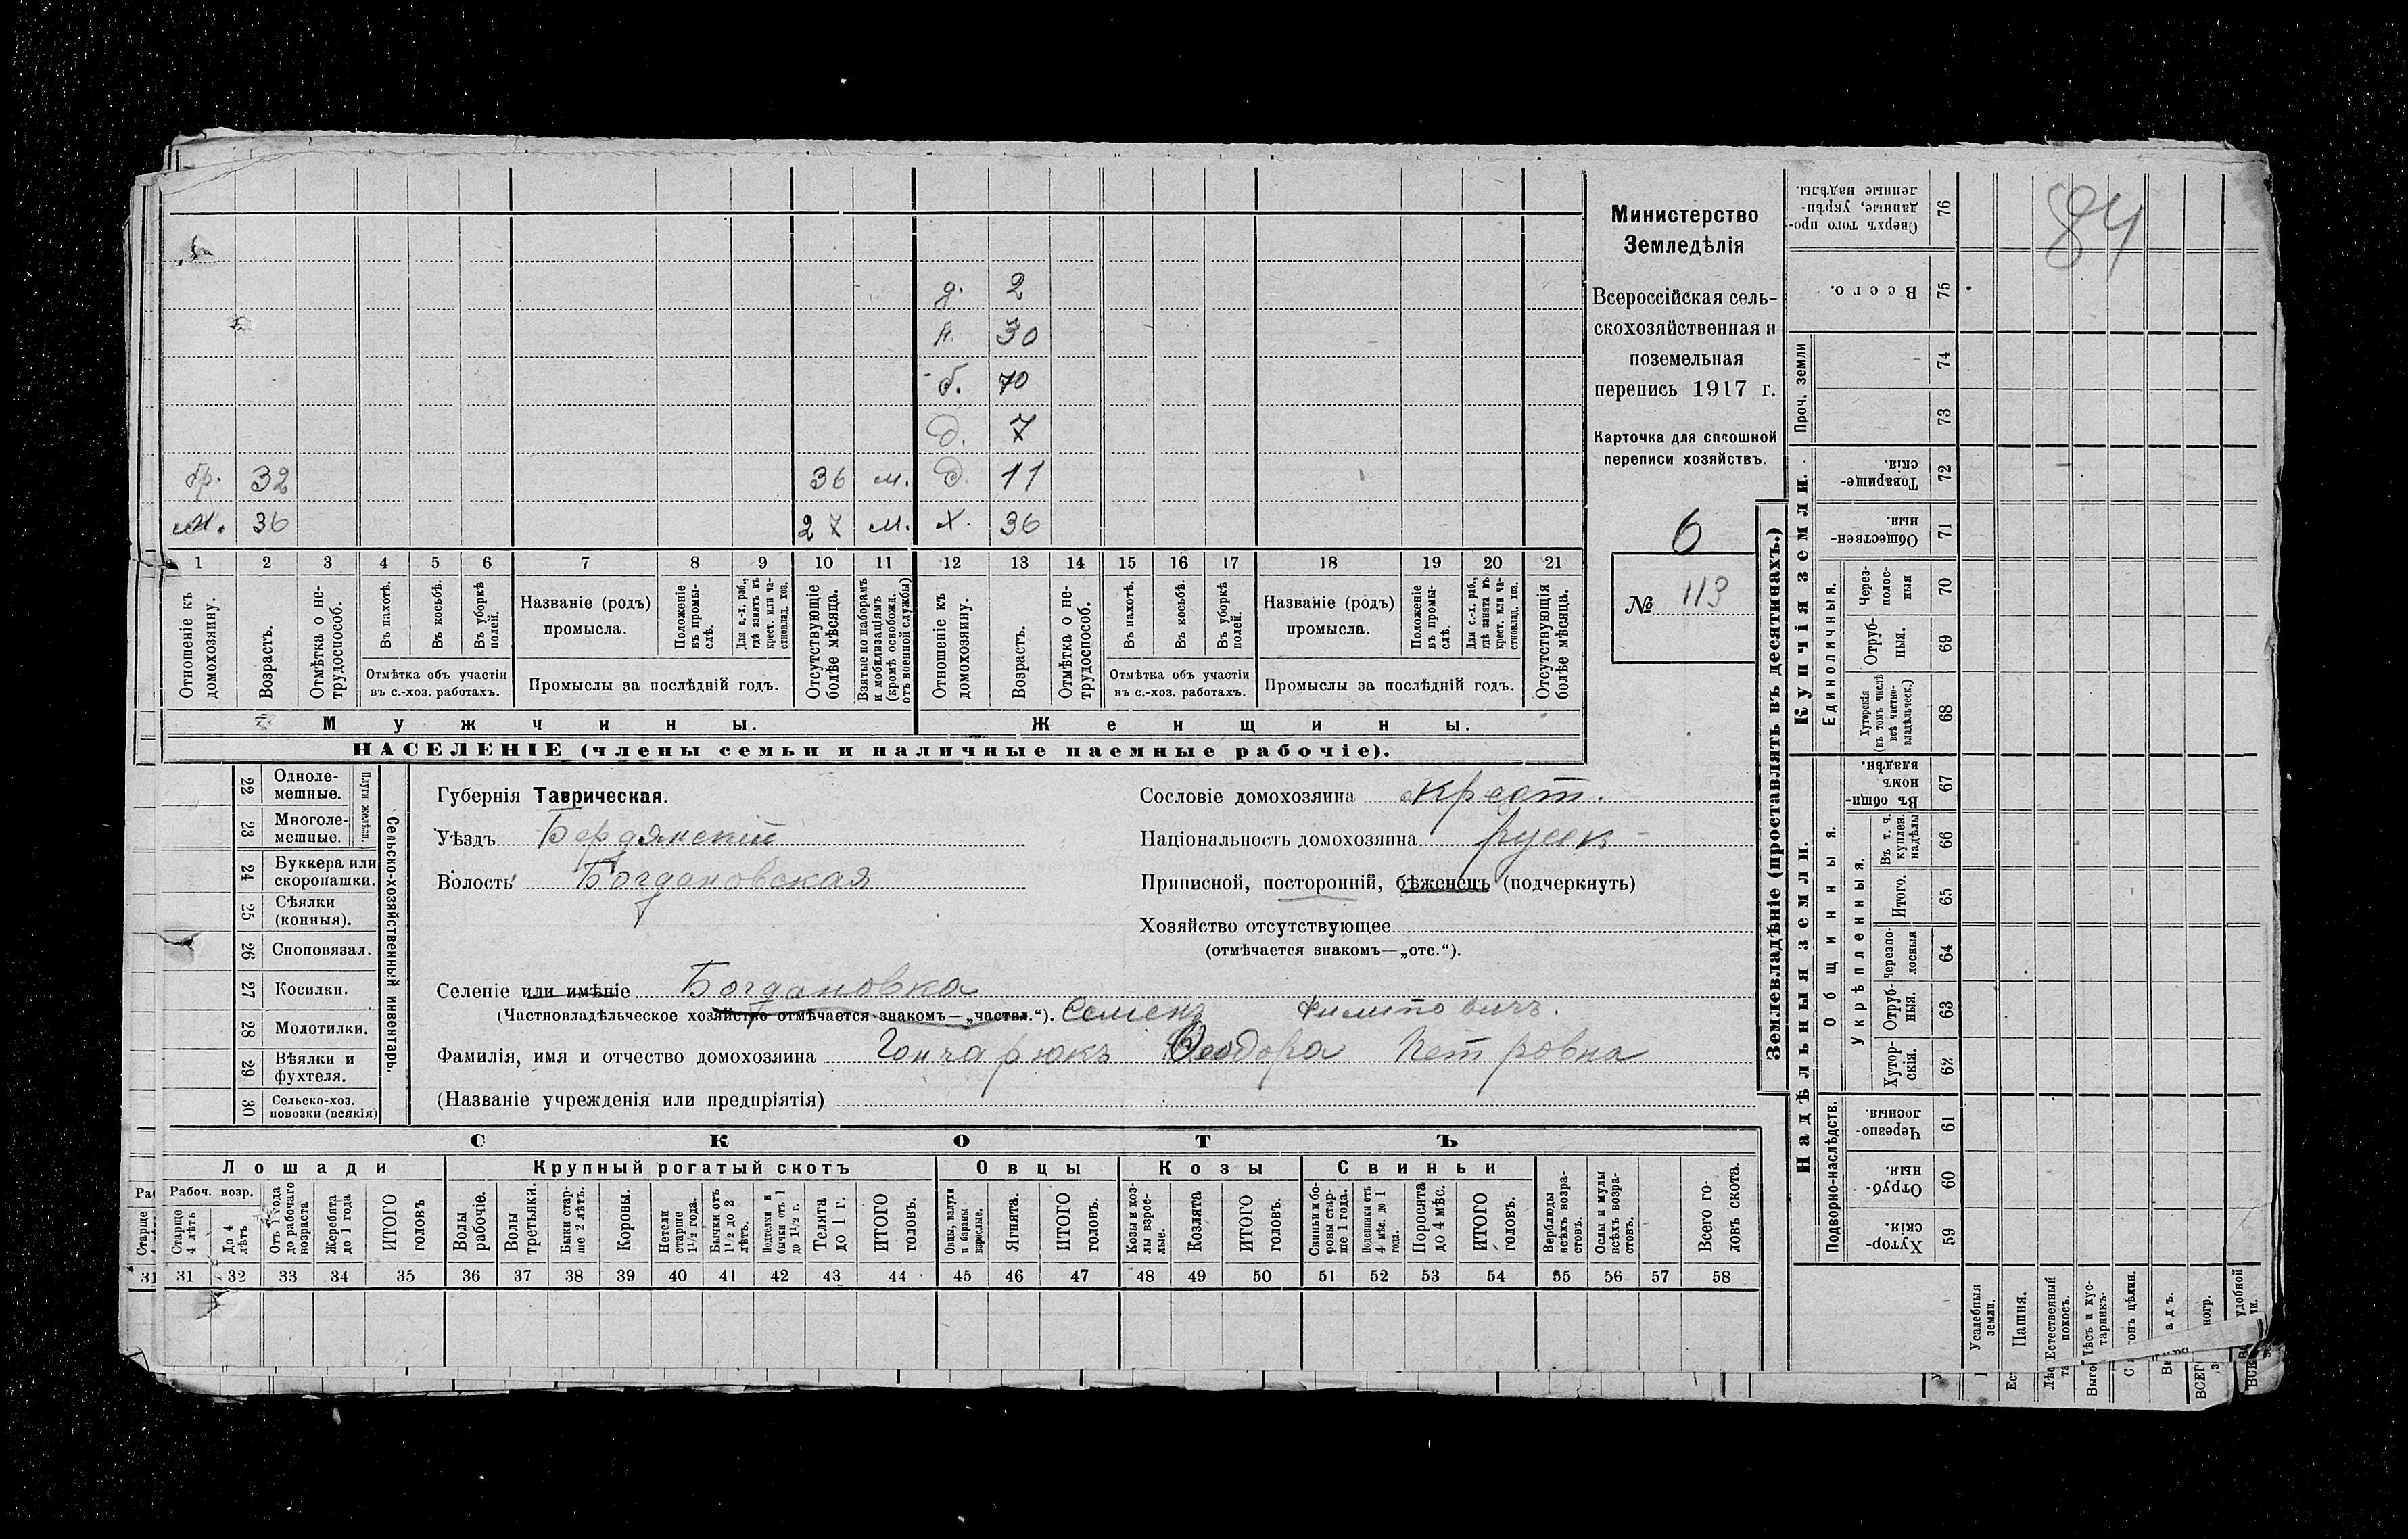 84
Министерство
Земледѣлія
Всероссійская сель-
скохозяйственная и
поземельная
перепись 1917 г.
Карточка для сплошной
переписи хозяйствъ.
6
№ 113
д. 2
д. 30
б. 70
д. 7
бр. 32 36 м. д. 11
м. 36 27 м. х. 36
1 2 3 4 5 6 7 8 9 10 11 12 13 14 15 16 17 18 19 20 21
Отношеніе къ домохозяину.
Возрастъ.
Отмѣтка о не-трудоспособ.
Въ пахотѣ.
Въ косьбѣ.
Въ уборкѣ полей.
Отмѣтка объ участіи въ с.-хоз. работахъ.
Названіе (родъ) промысла.
Положеніе въ промы-слѣ.
Для с.-х. раб., гдѣ занятъ въ крест. или ча-стновлад. хоз.
Промыслы за послѣдній годъ.
Отсутствующіе болѣе мѣсяца.
Взятые по наборамъ и мобилизаціямъ (кромѣ освобожд. отъ военной службы)
Отношеніе къ домохозяину.
Возрастъ.
Отмѣтка о не-трудоспособ.
Въ пахотѣ.
Въ косьбѣ.
Въ уборкѣ полей.
Отмѣтка объ участіи въ с.-хоз. работахъ.
Названіе (родъ) промысла.
Положеніе въ промы-слѣ.
Для с.-х. раб., гдѣ занята въ крест. или ча-стновлад. хоз.
Промыслы за послѣдній годъ.
Отсутствующія болѣе мѣсяца.
Мужчины. Женщины.
НАСЕЛЕНІЕ (члены семьи и наличные наемные рабочіе).
22 Одноле-мешные.
23 Многоле-мешные.
Плуги желѣзн.
24 Буккера или скоропашки.
25 Сѣялки (конныя).
26 Сноповязал.
27 Косилки.
28 Молотилки.
29 Вѣялки и фухтеля.
30 Сельско-хоз. повозки (всякія)
Сельско-хозяйственный инвентарь.
Губернія Таврическая.
Уѣздъ Бердянскій
Волость Богдановская
Сословіе домохозяина крест.
Національность домохозяина русск
Приписной, посторонній, бѣженецъ (подчеркнуть)
Хозяйство отсутствующее
(отмѣчается знакомъ—„отс.“).
Селеніе или имѣніе Богдановка
(Частновладѣльческое хозяйство отмѣчается знакомъ—„частвл.“). Семенъ Филиповичъ.
Фамилія, имя и отчество домохозяина Гончарюкъ Ѳеодора Петровна
(Названіе учрежденія или предпріятія)
СКОТЪ
Лошади Крупный рогатый скотъ Овцы Козы Свиньи
Рабоч. возр.
Старше 4 лѣтъ
До 4 лѣтъ
Отъ 1 года до рабочаго возраста
Жеребята до 1 года
ИТОГО головъ
Волы рабочіе.
Волы третьяки.
Быки стар-ше 2 лѣтъ.
Коровы.
Нетели старше 1½ года.
Бычки отъ 1½ до 2 лѣтъ.
Подтелки и бычки отъ 1 до 1½ г.
Телята до 1 г.
ИТОГО головъ.
Овцы, валухи и бараны взрослые.
Ягнята.
ИТОГО головъ.
Козы и коз-лы взрос-лые.
Козлята
ИТОГО головъ.
Свиньи и бо-ровы стар-ше 1 года.
Подсвинки отъ 4 мѣс. до 1 года.
Поросята до 4 мѣс.
ИТОГО головъ.
Верблюды всѣхъ возра-стовъ.
Ослы и мулы всѣхъ возра-стовъ.
Всего го-ловъ скота.
31 32 33 34 35 36 37 38 39 40 41 42 43 44 45 46 47 48 49 50 51 52 53 54 55 56 57 58
Землевладѣніе (проставлять въ десятинахъ.)
Купчія земли.
Сверхъ того про-данные, укрѣп-ленные надѣлы. 76
Всего. 75
Проч. земли 74 73
Товарище-скія. 72
Обществен-ныя. 71
Единоличныя.
Через-полос-ныя 70
Отруб-ныя. 69
Хуторскія (въ томъ числѣ всѣ частно-владѣльческ.) 68
Надѣльныя земли.
Общинныя.
Въ общин-номъ владѣн. 67
Въ т. ч. куплен. надѣлы 66
Укрѣпленныя.
Итого. 65
Черезпо-лосныя 64
Отруб-ныя. 63
Хутор-скія. 62
Подворно-наслѣдств.
Черезпо-лосныя 61
Отруб-ныя. 60
Хутор-скія. 59
Усадебныя земли.
Пашня.
Естественный покосъ.
Лѣсъ и кус-тарникъ.